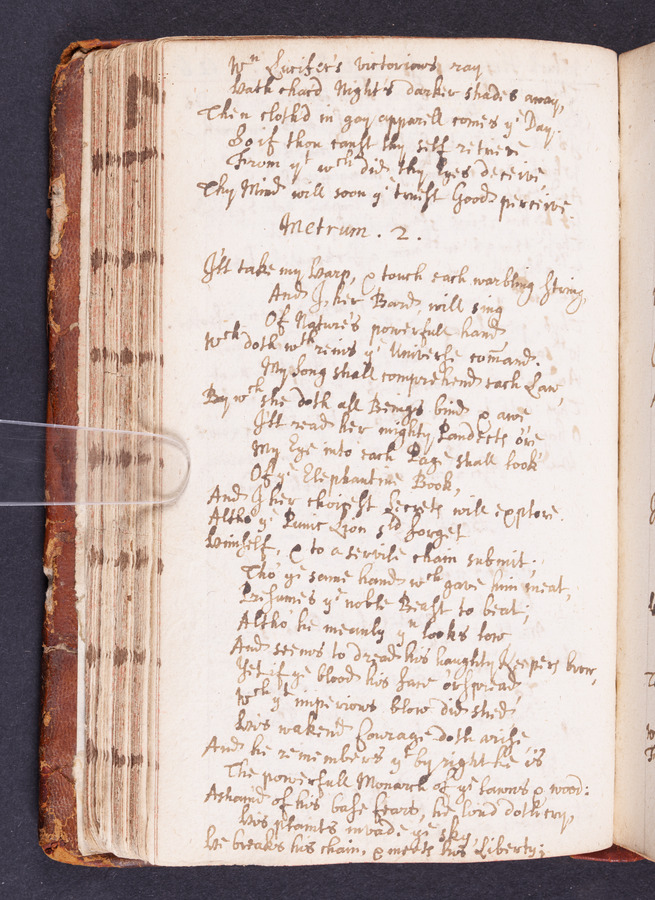 Wn Lucifer's victorious ray
Hath chac'd Night's darker shades away,
Then cloth'd in gay apparell comes ye Day.
So if thou canst thy self retrieve
From yt wch did thy Eyes deceive
Thy Mind will soon ye truest Good perceive.
Metrum. 2.
I'll take my Harp, & touch each warbling string,
And I, her Bard, will sing
Of Nature's powerfull hand
Wch doth wth reins ye Universe comand.
My song shall comprehend each Law
By wch she doth all Beings bind & awe
I'll read her mighty Pandects o're
My Eye into each Page shall look
Of ye Elephantine Book,
And I her choicest Secrets will explore.
Altho' ye Punic Lion sld forget
Himself, & to a servile chain submit;
Tho' ye same hand wch gave him meat,
Presumes ye noble Beast to beat;
Altho' he meanly yn looks low
And seems to dread his haughty Keepers brow,
Yet if ye blood his face o'rspread
Wch yt imperious blow did shed
His waken'd Courage doth arise
And he remembers yt by right he is
The powerfull Monarch of ye lawns & wood:
Asham'd of his base fears, he loud doth cry,
His plaints invade ye sky,
He breaks his chain, & meets his Liberty;